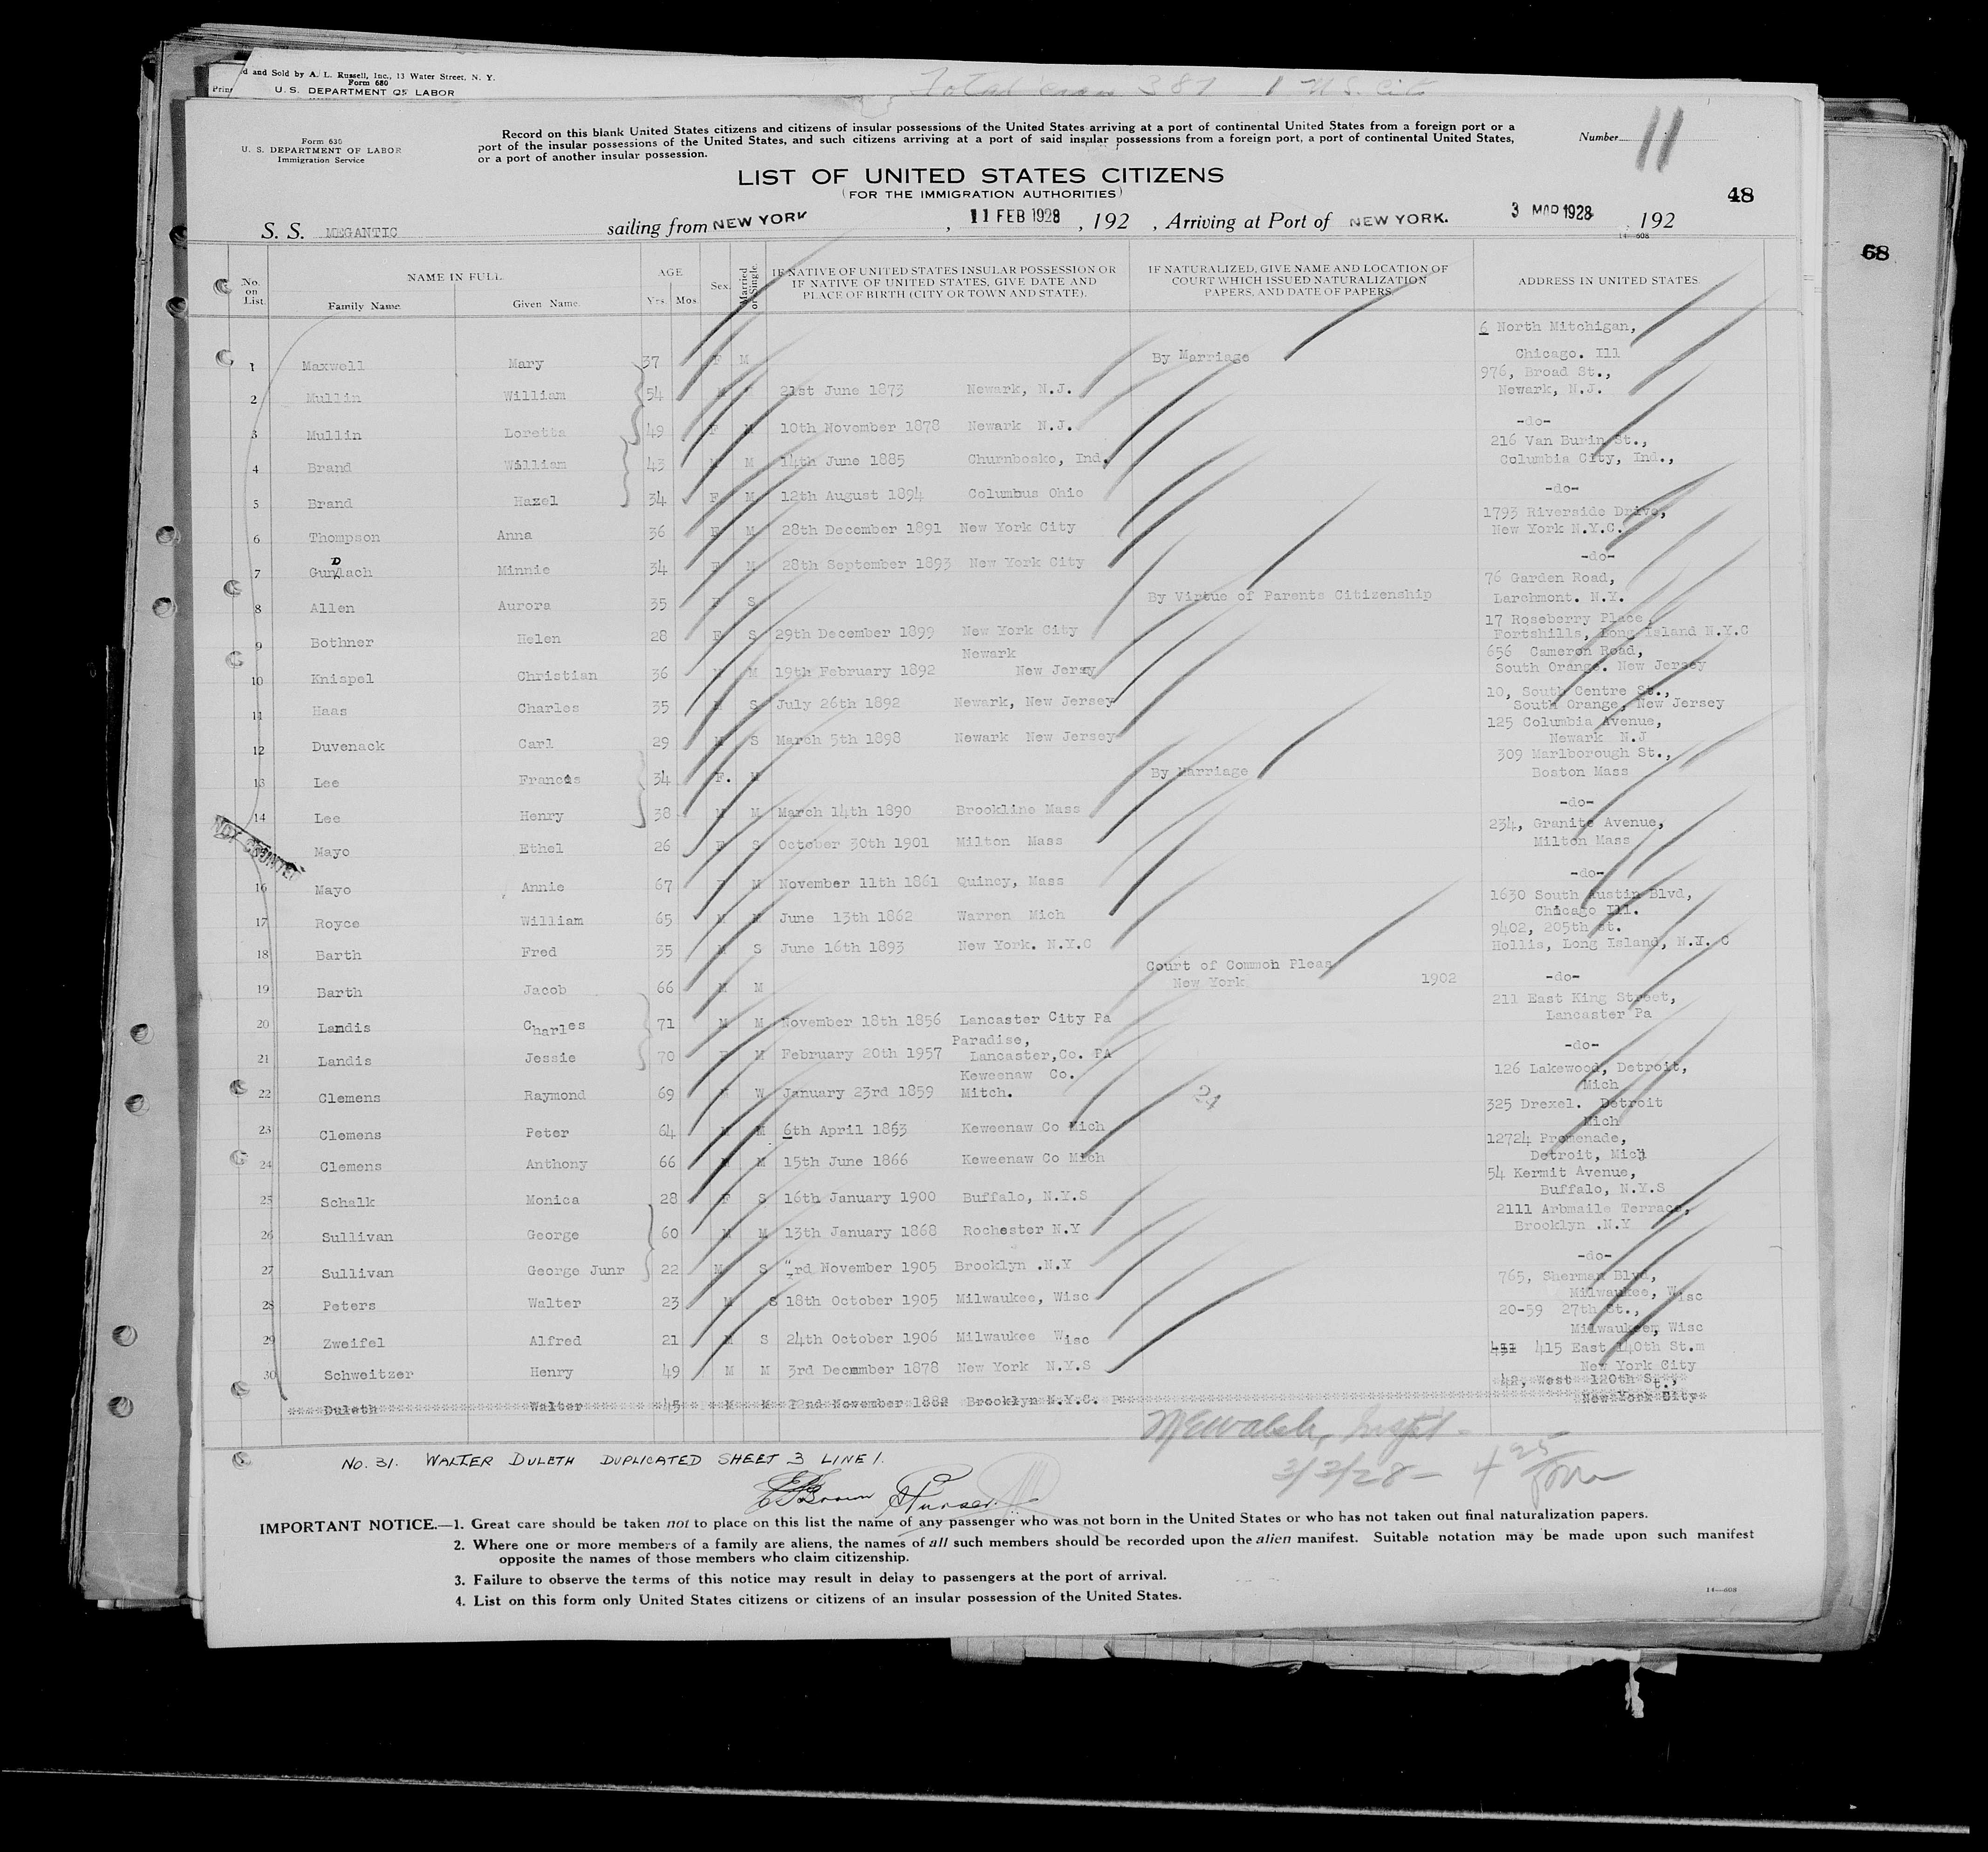 d and Sold by A. L. Russell, Inc., 13 Water Street, N. Y.
Form 680
U. S. DEPARTMENT OF LABOR
Total 387 1 U.S. Cit
Form 630
U. S. DEPARTMENT OF LABOR
Immigration Service
Record on this blank United States citizens and citizens of insular possessions of the United States arriving at a port of continental United States from a foreign port or a
port of the insular possessions of the United States, and such citizens arriving at a port of said insular possessions from a foreign port, a port of continental United States,
or a port of another insular possession.
Number 11
LIST OF UNITED STATES CITIZENS
(FOR THE IMMIGRATION AUTHORITIES)
48
68
S. S. MEGANTIC sailing from NEW YORK, 11 FEB 1928, 192 , Arriving at Port of NEW YORK. 3 MAR 1928, 192
14—608
No. on List. NAME IN FULL Family Name. Given Name. AGE Yrs. Mos. Sex. Married or Single. IF NATIVE OF UNITED STATES INSULAR POSSESSION OR IF NATIVE OF UNITED STATES, GIVE DATE AND PLACE OF BIRTH (CITY OR TOWN AND STATE). IF NATURALIZED, GIVE NAME AND LOCATION OF COURT WHICH ISSUED NATURALIZATION PAPERS, AND DATE OF PAPERS. ADDRESS IN UNITED STATES.
1 Maxwell Mary 37 F M By Marriage 6 North Mitchigan, Chicago. Ill
2 Mullin William 54 M 21st June 1873 Newark, N.J. 976, Broad St., Newark, N.J.
3 Mullin Loretta 49 F M 10th November 1878 Newark N.J. -do-
4 Brand William 43 M M 14th June 1885 Churnbosko, Ind. 216 Van Burin St., Columbia City, Ind.,
5 Brand Hazel 34 F M 12th August 1894 Columbus Ohio -do-
6 Thompson Anna 36 F M 28th December 1891 New York City 1793 Riverside Drive, New York N.Y.C.
7 Gundlach Minnie 34 F M 28th September 1893 New York City -do-
8 Allen Aurora 35 F S By Virtue of Parents Citizenship 76 Garden Road, Larchmont. N.Y.
9 Bothner Helen 28 F S 29th December 1899 New York City 17 Roseberry Place, Fortshills, Long Island N.Y.C
10 Knispel Christian 36 M M 19th February 1892 Newark New Jersy 656 Cameron Road, South Orange. New Jersey
11 Haas Charles 35 M S July 26th 1892 Newark, New Jersey 10, South Centre St., South Orange, New Jersey
12 Duvenack Carl 29 M S March 5th 1898 Newark New Jersey 125 Columbia Avenue, Newark N.J
13 Lee Francis 34 F. M By Marriage 309 Marlborough St., Boston Mass
14 Lee Henry 38 M M March 14th 1890 Brookline Mass -do-
NOT COUNTED
Mayo Ethel 26 F S October 30th 1901 Milton Mass 234, Granite Avenue, Milton Mass
16 Mayo Annie 67 F M November 11th 1861 Quincy, Mass -do-
17 Royce William 65 M M June 13th 1862 Warren Mich 1630 South Austin Blvd, Chicago Ill.
18 Barth Fred 35 M S June 16th 1893 New York. N.Y.C 9402, 205th St. Hollis, Long Island, N.Y. C
19 Barth Jacob 66 M M Court of Common Pleas New York 1902 -do-
20 Landis Charles 71 M M November 18th 1856 Lancaster City Pa 211 East King Street, Lancaster Pa
21 Landis Jessie 70 F M February 20th 1957 Paradise, Lancaster,Co. PA -do-
22 Clemens Raymond 69 M W January 23rd 1859 Keweenaw Co. Mitch. 24 126 Lakewood, Detroit, Mich
23 Clemens Peter 64 M M 6th April 1863 Keweenaw Co Mich 325 Drexel. Detroit Mich
24 Clemens Anthony 66 M M 15th June 1866 Keweenaw Co Mich 12724 Promenade, Detroit, Mich
25 Schalk Monica 28 F S 16th January 1900 Buffalo, N.Y.S 54 Kermit Avenue, Buffalo, N.Y.S
26 Sullivan George 60 M M 13th January 1868 Rochester N.Y 2111 Arbmaile Terrace, Brooklyn .N.Y
27 Sullivan George Junr 22 M S "rd November 1905 Brooklyn .N.Y -do-
28 Peters Walter 23 M S 18th October 1905 Milwaukee, Wisc 765, Sherman Blvd, Milwaukee, Wisc
29 Zweifel Alfred 21 M S 24th October 1906 Milwaukee Wisc 20-59 27th St., Milwaukee, Wisc
30 Schweitzer Henry 49 M M 3rd December 1878 New York N.Y.S 411 415 East 140th St.m New York City
Duleth Walter 45 M M 22nd November 1882 Brooklyn N.Y.C. 42, West 120th St., New York City
3/3/28
No. 31. WALTER DULETH DUPLICATED SHEET 3 LINE 1.
Brown Purser.
IMPORTANT NOTICE.—1. Great care should be taken not to place on this list the name of any passenger who was not born in the United States or who has not taken out final naturalization papers.
2. Where one or more members of a family are aliens, the names of all such members should be recorded upon the alien manifest. Suitable notation may be made upon such manifest
opposite the names of those members who claim citizenship.
3. Failure to observe the terms of this notice may result in delay to passengers at the port of arrival.
4. List on this form only United States citizens or citizens of an insular possession of the United States.
14—608